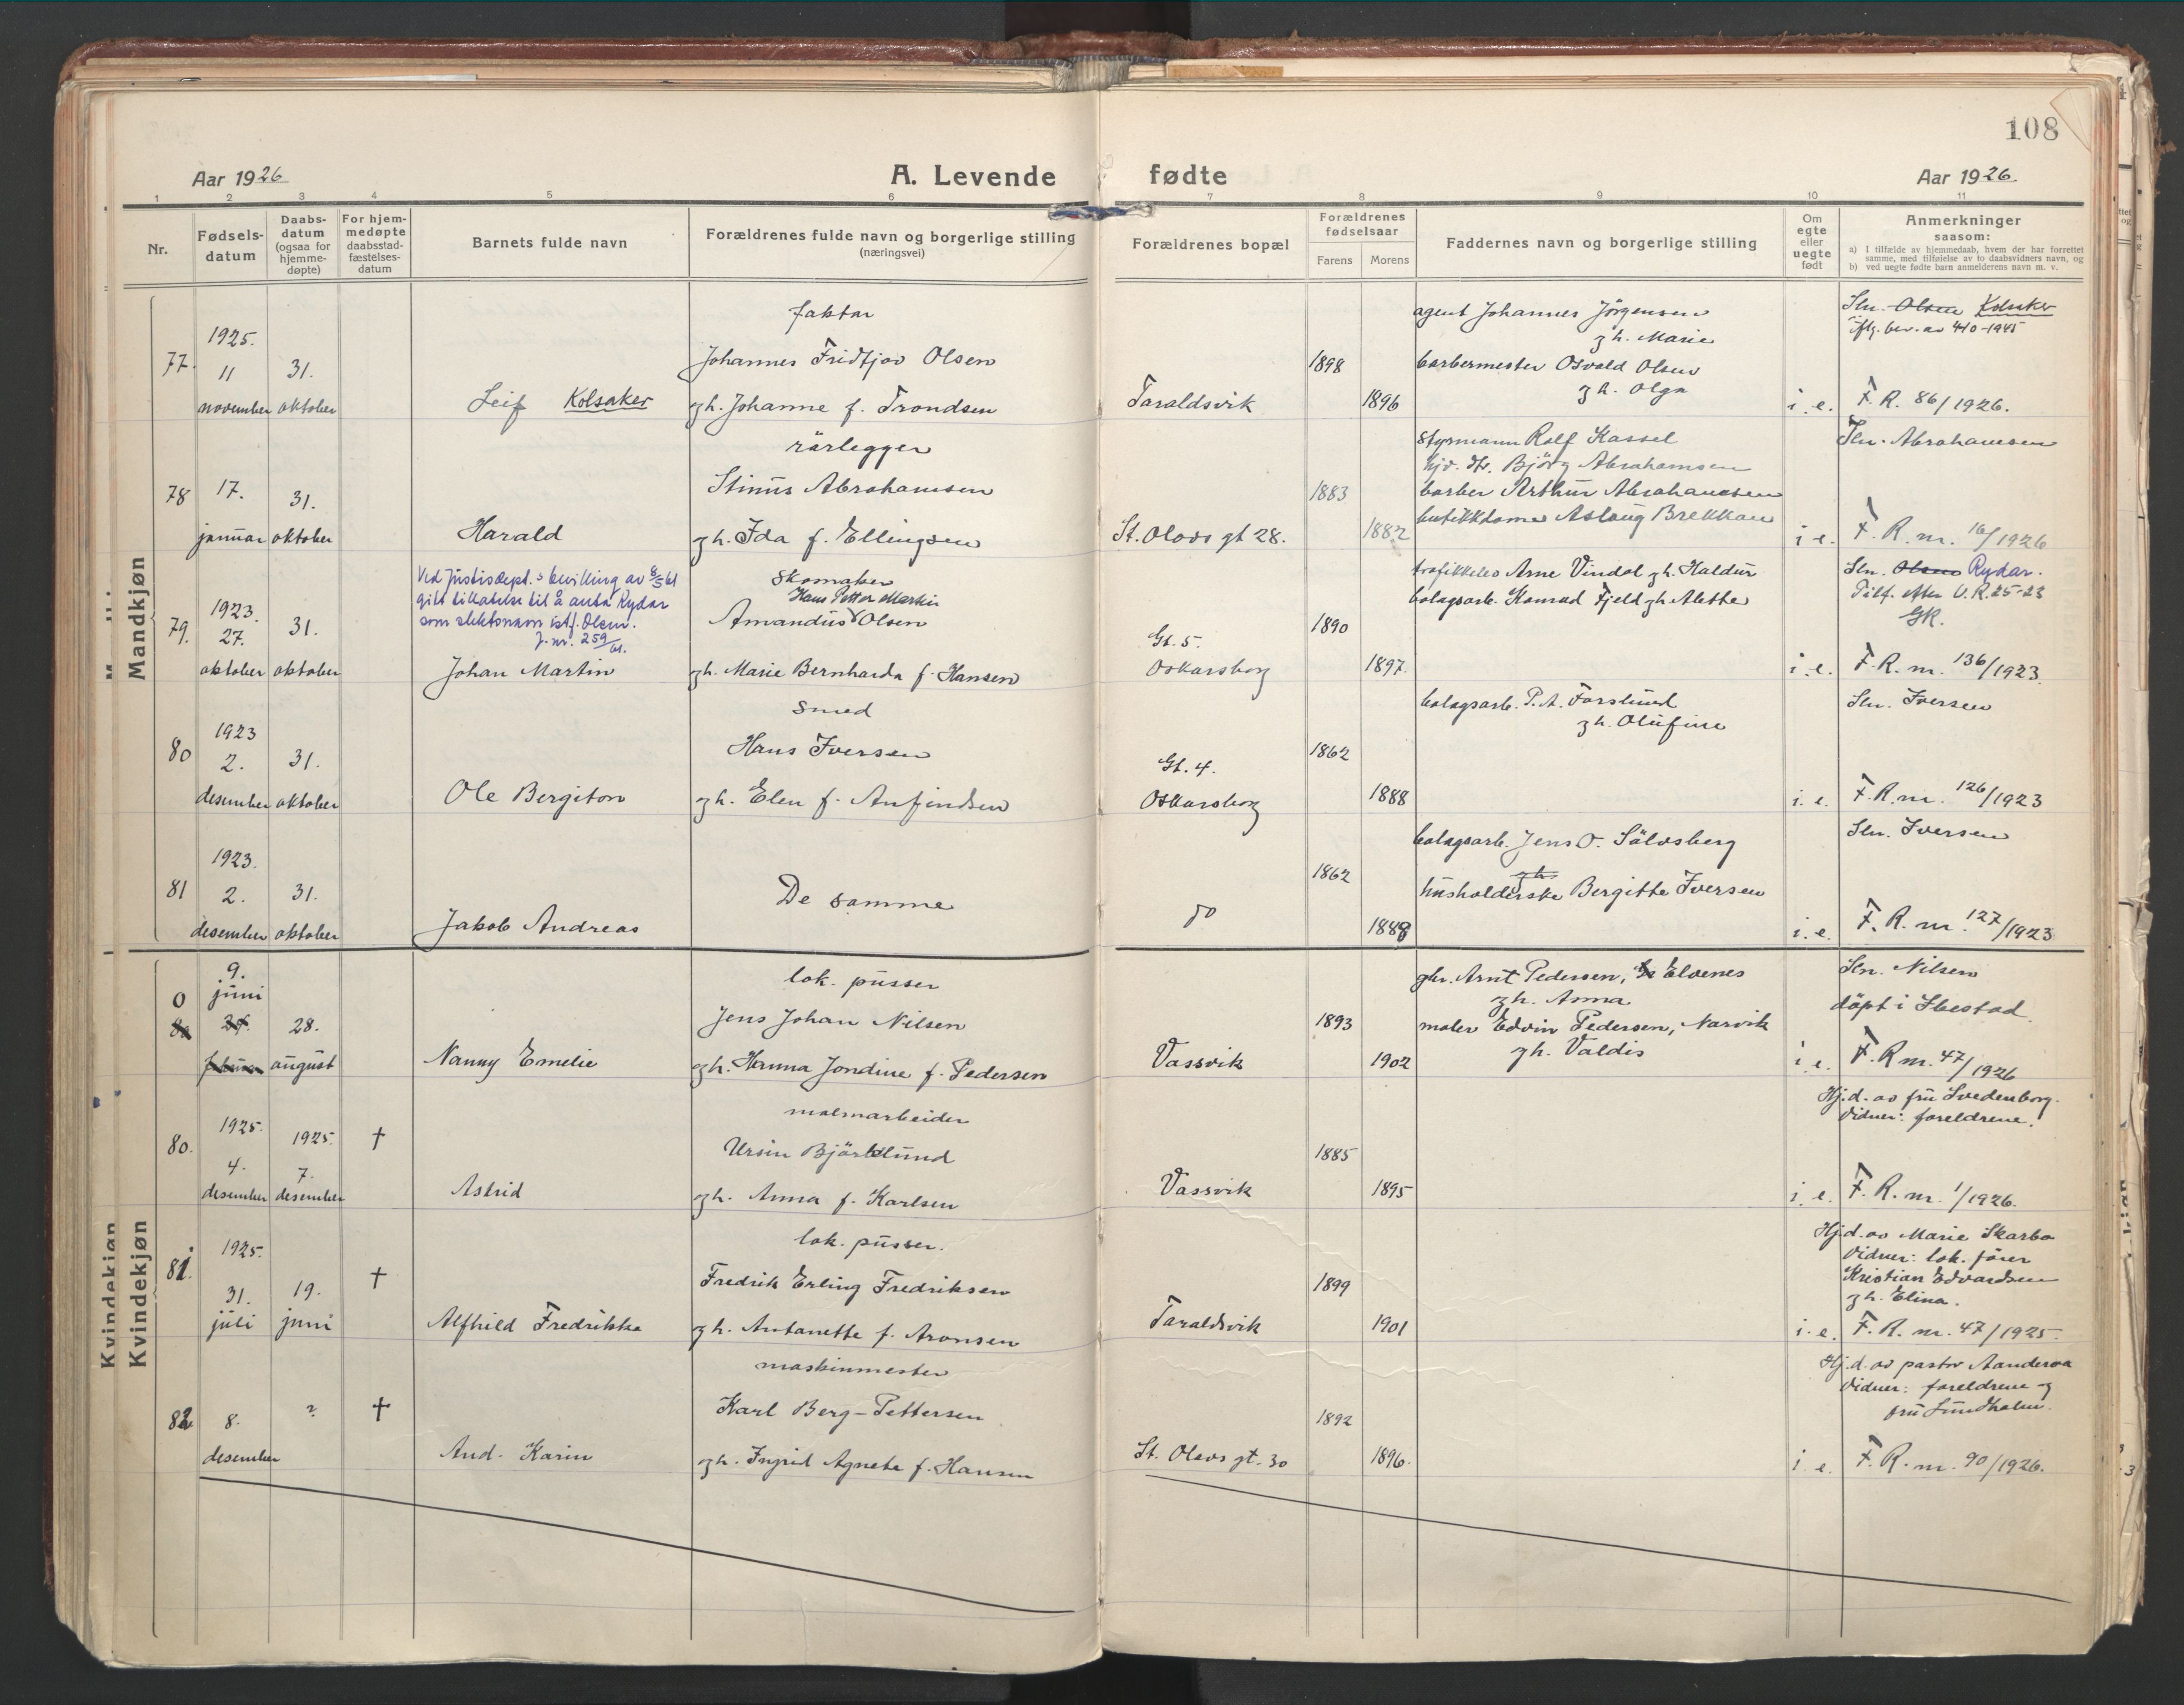 108
Aar 1926
A. Levende fødte
Aar 1926.
1 2 3 4 5 6 7 8 9 10 11
Nr.
Fødsels-
datum
Daabs-
datum
(ogsaa for
hjemme-
døpte)
For hjem-
medøpte
daabsstad-
fæstelses-
datum
Barnets fulde navn
Forældrenes fulde navn og borgerlige stilling
(næringsvei)
Forældrenes bopæl
Forældrenes
fødselsaar
Farens Morens
Faddernes navn og borgerlige stilling
Om
egte
eller
uegte
født
Anmerkninger
saasom:
a) I tilfælde av hjemmedaab, hvem der har forrettet
samme, med tilføielse av to daabsvidners navn, og
b) ved uegte fødte barn anmelderens navn m. v.
Mandkjøn
77.
1925.
11
november
31.
oktober
Leif Kolsaker
faktor
Johannes Fridtjov Olsen
g h. Johanne f. Trondsen
Taraldsvik
1898
1896
agent Johannes Jörgensen
g h. Marie
barbermester Osvald Olsen
g h. Olga
i. e.
Sln. Olsen Kolsaker
iflg. bev. av 4/10-1945
F. R. 86/1926.
78
17.
januar
31.
oktober
Harald
rörlegger
Stinus Abrahamsen
g h. Ida f. Ellingsen
St. Olavs gt 28.
1883
1882
styrmann Rolf Kassel
hjv. dtr. Björg Abrahamsen
barber Arthur Abrahamsen
butikkdame Aslaug Brekkan
i e.
Sln. Abrahamsen
F. R. nr. 16/1926
79.
1923.
27.
oktober
31.
oktober
Ved Justisdept.s bevilling av 8/5 61
gitt tillatelse til å anta Rydar
som slektsnavn istf. Olsen.
J. nr. 259/61.
Johan Martin
skomaker
Hans Petter Martin
Amandus Olsen
g h. Marie Bernharda f. Hansen
Gt. 5.
Oskarsborg
1890
1897.
trafikkelev Arne Vindal g h. Haldur
bolagsarb. Konrad Fjeld g h Alette
i. e.
Sln. Olsen Rydar.
Tilf. efter U.R. 25-23
GK.
F. R. nr. 136/1923.
80
1923
2.
desember
31.
oktober
Ole Bergiton
Smed
Hans Iversen
g h. Elen f. Anfindsen
Gt. 4.
Oskarsborg
1862
1888
bolagsarb. P. A. Forslund
g h. Olufine
i. e.
Sln. Iversen
F. R. nr. 126/1923
81
1923.
2.
desember
31.
oktober
Jakob Andreas
De samme
do
1862
1888
bolagsarb. Jens O. Sälvsberg
g h.
husholderske Bergitte Iversen
i. e.
Sln. Iversen
F. R. nr. 127/1923
Kvindekjøn
0
9.
juni
28.
august
Nanny Emelie
lok. pusser
Jens Johan Nilsen
g h. Hanna Jondine f. Pedersen
Vassvik
1893
1902
gbr. Arnt Pedersen, Elvenes
g h. Anna
maler Edvin Pedersen, Narvik
g h. Valdis
i. e.
Sln. Nilsen
döpt i Ibestad.
F. R nr. 47/1926
80.
1925.
4.
desember
1925.
7.
desember
†
Astrid
malmarbeider
Ursin Björklund
g h. Anna f. Karlsen
Vassvik
1885
1895
i. e.
Hj. d. av fru Svedenborg.
Vidner: foreldrene.
F. R. nr. 1/1926.
81.
1925.
31.
juli
19.
juni
†
Alfhild Fredrikke
lok. pusser.
Fredrik Erling Fredriksen
g h. Antonette f. Aronsen
Taraldsvik
1899
1901
i. e.
Hj. d. av Marie Skarbo
Vidner: lok. förer
Kristian Edvardsen
g h. Elina.
F. R. nr. 47/1925.
82
8.
desember
?
†
Aud. Karin
maskinmester
Karl Berg-Pettersen
g h. Ingrid Agnete f. Hansen
St. Olavs gt. 30
1892
1896.
i. e.
Hj. d. av pastor Aanderaa
Vidner: foreldrene og
fru Lundholm.
F. R. nr. 90/1926.